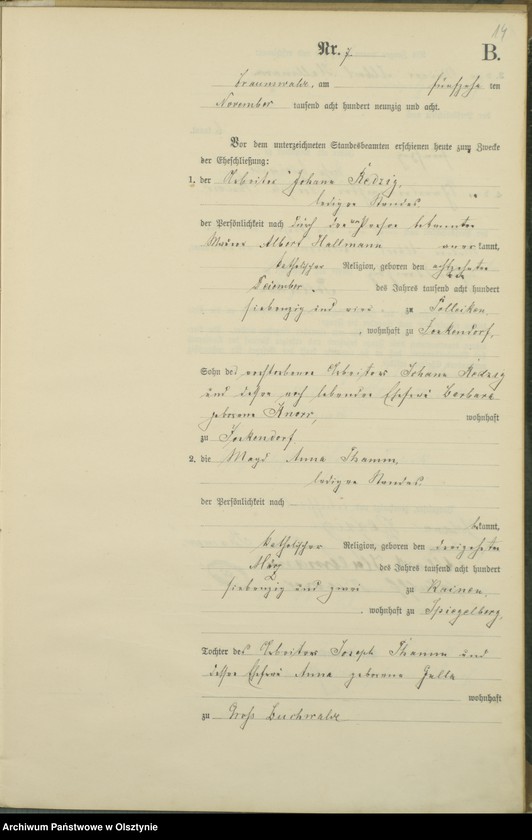 14
Nr. 7
B.
Braunswalde, am fünfzehn ten
November tausend acht hundert neunzig und acht.
Vor dem unterzeichneten Standesbeamten erschienen heute zum Zwecke
der Eheschließung:
1. der Arbeiter Johann Kedzig,
ledigen Standes
der Persönlichkeit nach durch den Person bekannten
Maurer Albert Hallmann anerkannt,
katholischer Religion, geboren den achtzehnten
Dezember des Jahres tausend acht hundert
siebenzig und vier zu Polleiken,
, wohnhaft zu Jonkendorf,
Sohn des verstorbenen Arbeiters Johann Kedzig
und dessen noch lebenden Ehefrau Barbara
geborene Knorr, wohnhaft
zu Jonkendorf
2. die Magd Anna Thamm,
ledigen Standes.
der Persönlichkeit nach
bekannt,
katholischer Religion, geboren den dreizehnten
März des Jahres tausend acht hundert
siebenzig und zwei zu Kainen,
, wohnhaft zu Spiegelberg,
Tochter des Arbeiters Joseph Thamm und
dessen Ehefrau Anna geborene Galla
wohnhaft
zu Groß Buchwalde
Archiwum Państwowe w Olsztynie